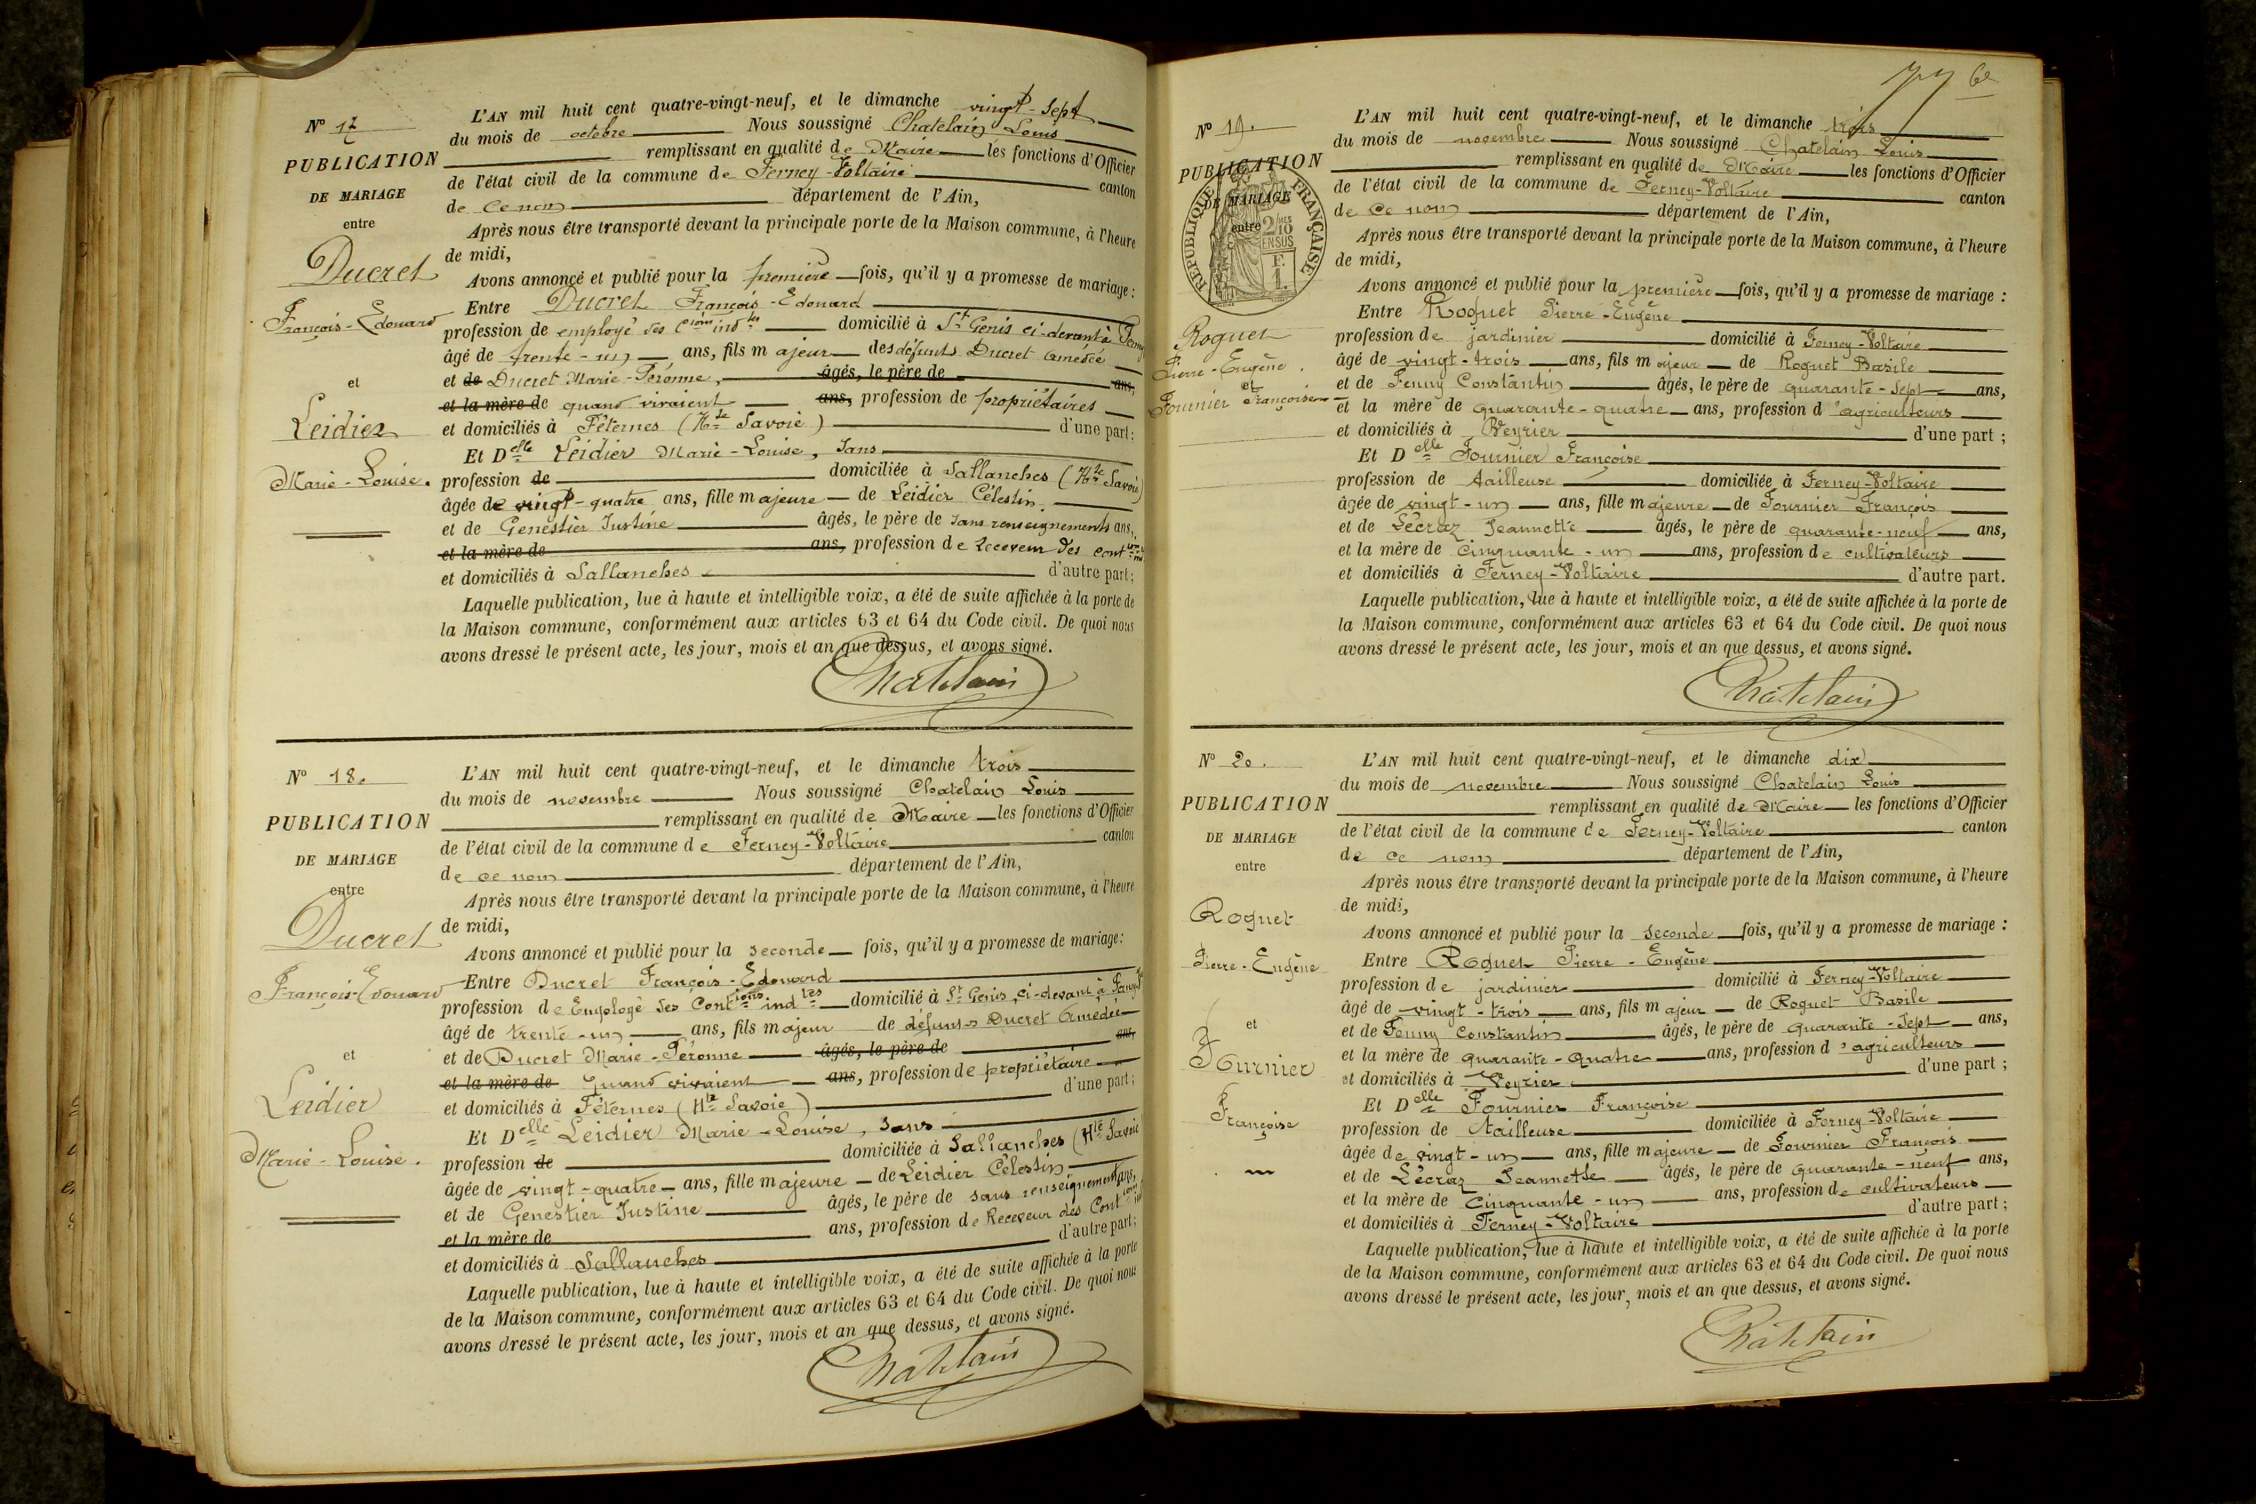 N° 17
PUBLICATION
DE MARIAGE
entre
Ducret
François-Edouard
et
Leidier
Marie-Louise.
L'AN mil huit cent quatre-vingt-neuf, et le dimanche vingt-sept
du mois de octobre Nous soussigné Chatelain Louis
remplissant en qualité de Maire les fonctions d'Officier
de l'état civil de la commune de Ferney-Voltaire canton
de ce nom département de l'Ain,
Après nous être transporté devant la principale porte de la Maison commune, à l'heure
de midi,
Avons annoncé et publié pour la première fois, qu'il y a promesse de mariage :
Entre Ducret François-Edouard
profession de employé des C.ions ind.tes domicilié à St Genis ci-devant à
âgé de trente-un ans, fils majeur des défunts Ducret Amédée
et de Ducret Marie-Péronne, âgés, le père de ans,
et la mère de quand vivaient ans, profession de propriétaires
et domiciliés à Féternes (Hte Savoie) d'une part :
Et Delle Leidier Marie-Louise, sans
profession de domiciliée à Sallanches (Hte Savoie)
âgée de vingt-quatre ans, fille majeure de Leidier Célestin.
et de Genestier Justine âgés, le père de sans renseignements ans,
et la mère de ans, profession de Receveur des cont
et domiciliés à Sallanches d'autre part :
Laquelle publication, lue à haute et intelligible voix, a été de suite affichée à la porte de
la Maison commune, conformément aux articles 63 et 64 du Code civil. De quoi nous
avons dressé le présent acte, les jour, mois et an que dessus, et avons signé.
Chatelain
N° 18.
PUBLICATION
DE MARIAGE
entre
Ducret
François-Edouard
et
Leidier
Marie-Louise.
L'AN mil huit cent quatre-vingt-neuf, et le dimanche trois
du mois de novembre Nous soussigné Chatelain Louis
remplissant en qualité de Maire les fonctions d'Officier
de l'état civil de la commune de Ferney-Voltaire canton
de ce nom département de l'Ain,
Après nous être transporté devant la principale porte de la Maison commune, à l'heure
de midi,
Avons annoncé et publié pour la seconde fois, qu'il y a promesse de mariage :
Entre Ducret François-Edouard
profession de Employé des Contions indtes domicilié à St Genis, ci-devant à
âgé de trente-un ans, fils majeur de défunts Ducret Amédée
et de Ducret Marie-Péronne âgés, le père de ans,
et la mère de quand vivaient ans, profession de propriétaire
et domiciliés à Féternes (Hte Savoie) d'une part ;
Et Delle Leidier Marie-Louise, sans
profession de domiciliée à Sallanches (Hte Savoie
âgée de vingt-quatre ans, fille majeure de Leidier Célestin
et de Genestier Justine âgés, le père de sans renseignements ans,
et la mère de ans, profession de Receveur des Cont
et domiciliés à Sallanches d'autre part ;
Laquelle publication, lue à haute et intelligible voix, a été de suite affichée à la porte
de la Maison commune, conformément aux articles 63 et 64 du Code civil. De quoi nous
avons dressé le présent acte, les jour, mois et an que dessus, et avons signé.
Chatelain
N° 19.
PUBLICATION
DE MARIAGE
entre
RÉPUBLIQUE FRANÇAISE
2/10 EN SUS
F. 1.
Roguet
Pierre-Eugène.
et
Fournier Françoise
L'AN mil huit cent quatre-vingt-neuf, et le dimanche trois
du mois de novembre Nous soussigné Chatelain Louis
remplissant en qualité de Maire les fonctions d'Officier
de l'état civil de la commune de Ferney-Voltaire canton
de ce nom département de l'Ain,
Après nous être transporté devant la principale porte de la Maison commune, à l'heure
de midi,
Avons annoncé et publié pour la première fois, qu'il y a promesse de mariage :
Entre Roguet Pierre-Eugène
profession de jardinier domicilié à Ferney-Voltaire
âgé de vingt-trois ans, fils majeur de Roguet Basile
et de Fenny Constantin âgés, le père de quarante-sept ans,
et la mère de quarante-quatre ans, profession d'agriculteurs
et domiciliés à Veyrier d'une part ;
Et Delle Fournier Françoise
profession de tailleuse domiciliée à Ferney-Voltaire
âgée de vingt-un ans, fille majeure de Fournier François
et de Lécraz Jeannette âgés, le père de quarante-neuf ans,
et la mère de cinquante-un ans, profession de cultivateurs
et domiciliés à Ferney-Voltaire d'autre part.
Laquelle publication, lue à haute et intelligible voix, a été de suite affichée à la porte de
la Maison commune, conformément aux articles 63 et 64 du Code civil. De quoi nous
avons dressé le présent acte, les jour, mois et an que dessus, et avons signé.
Chatelain
N° 20.
PUBLICATION
DE MARIAGE
entre
Roguet
Pierre-Eugène
et
Fournier
Françoise
L'AN mil huit cent quatre-vingt-neuf, et le dimanche dix
du mois de novembre Nous soussigné Chatelain Louis
remplissant en qualité de Maire les fonctions d'Officier
de l'état civil de la commune de Ferney-Voltaire canton
de ce nom département de l'Ain,
Après nous être transporté devant la principale porte de la Maison commune, à l'heure
de midi,
Avons annoncé et publié pour la seconde fois, qu'il y a promesse de mariage :
Entre Roguet Pierre-Eugène
profession de jardinier domicilié à Ferney-Voltaire
âgé de vingt-trois ans, fils majeur de Roguet Basile
et de Fenny Constantin âgés, le père de quarante-sept ans,
et la mère de quarante-quatre ans, profession d'agriculteurs
et domiciliés à Veyrier d'une part ;
Et Delle Fournier Françoise
profession de tailleuse domiciliée à Ferney-Voltaire
âgée de vingt-un ans, fille majeure de Fournier François
et de Lécraz Jeannette âgés, le père de quarante-neuf ans,
et la mère de cinquante-un ans, profession de cultivateurs
et domiciliés à Ferney-Voltaire d'autre part ;
Laquelle publication, lue à haute et intelligible voix, a été de suite affichée à la porte
de la Maison commune, conformément aux articles 63 et 64 du Code civil. De quoi nous
avons dressé le présent acte, les jour, mois et an que dessus, et avons signé.
Chatelain